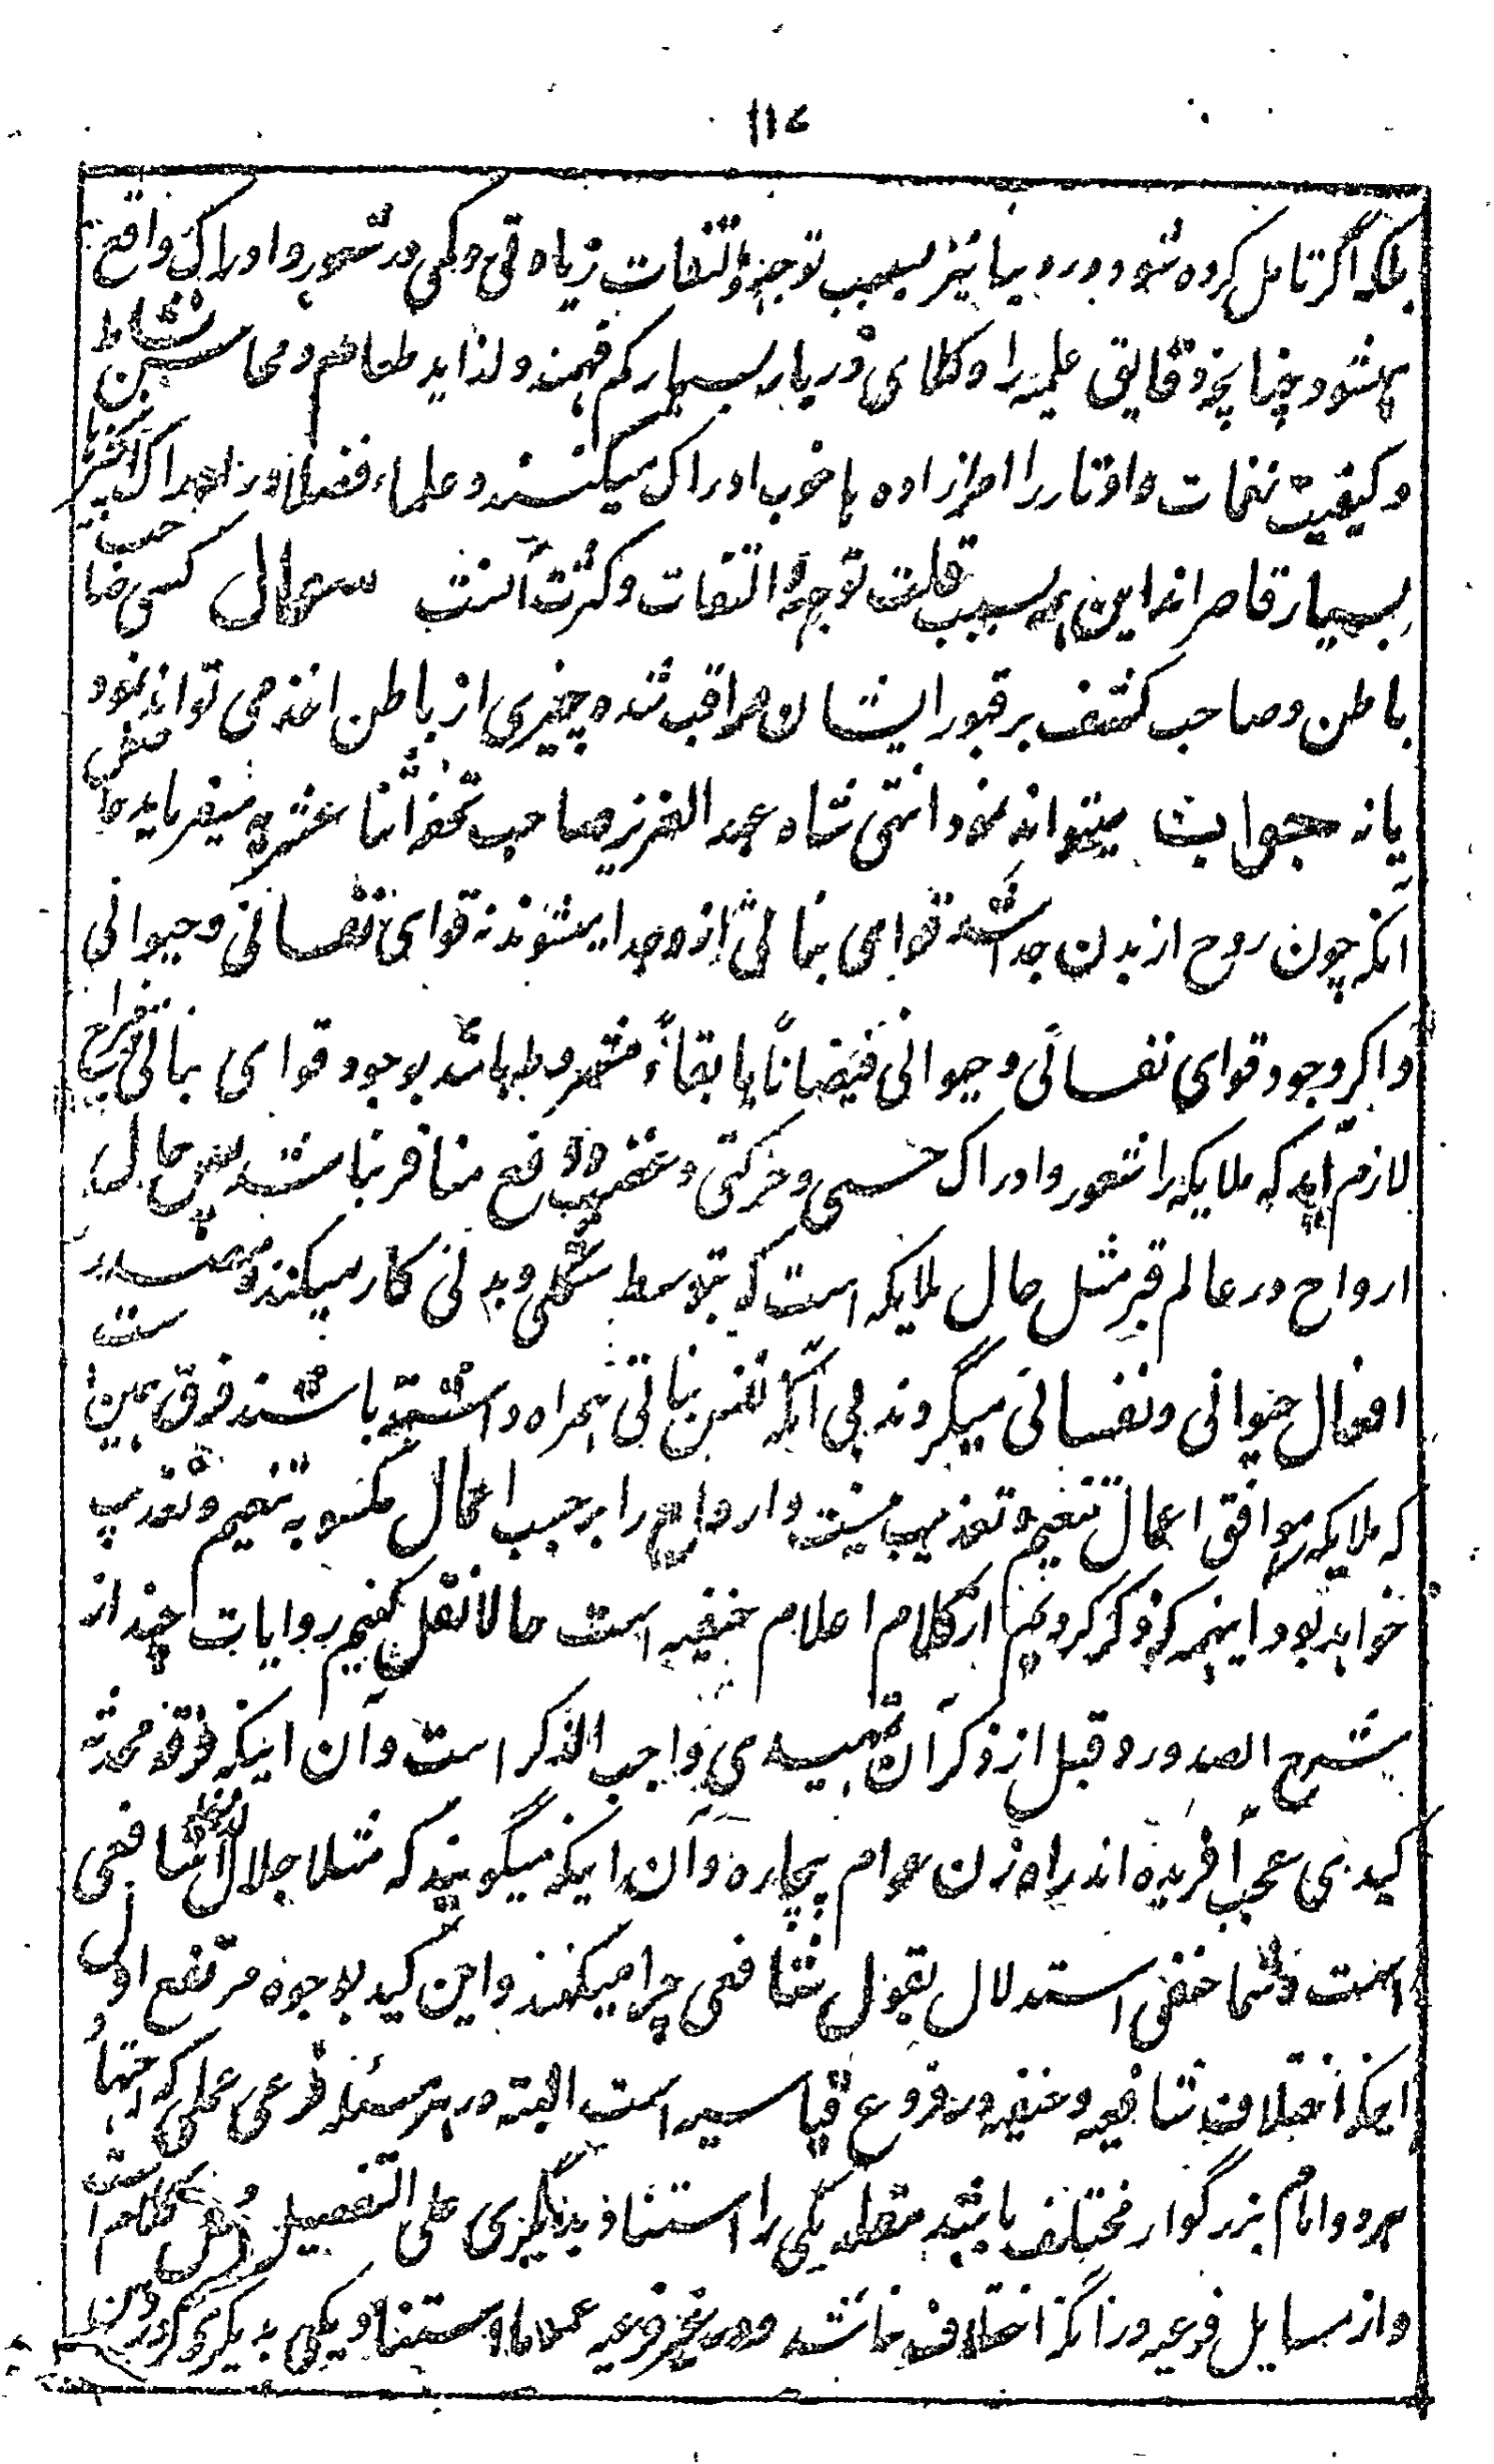 ۱۱۴
بلکه اگر تامل کرده شود در دنیا نیز بسبب توجه و التفات زیادتی و کمی در شعور و ادراک واقع
میشود چنانچه دقایق علمیه را وکلای دربار بسیار کم فهمند و لذاید طعام و محاسن نشاط
و کیفیت نغمات و اوتار را امرازاده ها خوب ادراک میکنند و علماء فضلا در ادراک این چیزها
بسیار قاصر اند این همه بسبب قلت توجه و التفات و کثرت آنست سوال کسی صاحب
باطن و صاحب کشف بر قبور ایشان مراقب شده چیزی از باطن اخذ می تواند نمود
یا نه جواب میتواند نمود انتهی شاه عبد العزیز صاحب تحفه اثنا عشریه میفرماید حاصلش
آنکه چون روح از بدن جدا شد قوای نباتی از وجدا میشوند نه قوای نفسانی و حیوانی
و اگر وجود قوای نفسانی و حیوانی فیضاناً یا بقاءً مشروط باشد بوجود قوای نباتی و مزاج
لازم آید که ملایکه را شعور و ادراک حسی و حرکتی و غضب و دفع منافر نباشد پس حال
ارواح در عالم قبر مثل حال ملایکه است که بتوسط شکلی و بدنی کار میکنند و مصدر
افعال حیوانی و نفسانی میگردند بی آنکه نفس نباتی همراه داشته باشند فرق همین است
که ملایکه موافق اعمال تنعیم و تعذیب نیست و ارواح را بر حسب اعمال مکسوبه تنعیم و تعذیب
خواهد بود اینهمه که ذکر کردیم از کلام اعلام حنفیه است حالا نقل کنیم روایات چند از
شرح الصدور و قبل از ذکر آن تمهیدی واجب الذکر است و آن اینکه فرقه محدثه
کیدی عجب آفریده اند راه زن عوام بیچاره و آن اینکه میگویند که مثلا جلال الدین شافعی
است و شما حنفی استدلال بقول شافعی چرا میکنند و این کید بوجوه مرتفع اول
اینکه اختلاف شافعیه و حنفیه در فروع قیاسیه است البته در هر مسئله فرعی عملی که اجتهاد
هر دو امام بزرگوار مختلف باشد مقلد یکی را استناد بدیگری علی التفصیل محل کلام است
و از مسایل فرعیه در انکه اختلاف نباشد و در غیر فرعیه عموما استناد یکی بدیگری کردن